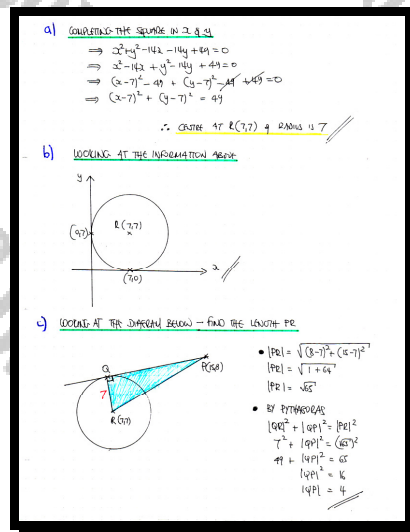 a) COMPLETING THE SQUARE IN x & y
⇒ x²+y²-14x-14y+49=0
⇒ x²-14x+y²-14y+49=0
⇒ (x-7)²-49+(y-7)²-49+49=0
⇒ (x-7)²+(y-7)²=49
∴ CENTRE AT R(7,7) & RADIUS IS 7
b) LOOKING AT THE INFORMATION ABOVE
y
R(7,7)
(0,7)
x
(7,0)
c) LOOKING AT THE DIAGRAM BELOW - FIND THE LENGTH PR
Q
7
R(7,7)
• |PR| = √(8-7)²+(15-7)²
|PR| = √1+64
|PR| = √65
• BY PYTHAGORAS
|QR|²+|QP|²=|PR|²
7²+|QP|²=(√65)²
49+|QP|²=65
|QP|²=16
|QP|=4